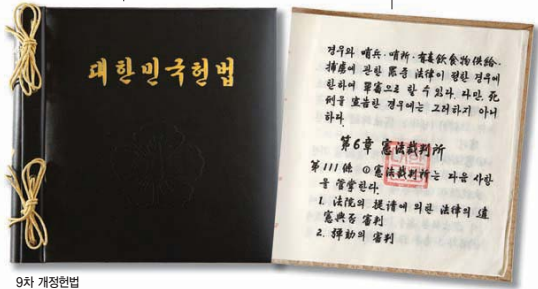 대한민국헌법
경우와 哨兵·哨所·有毒飮食物供給·
捕虜에 관한 罪중 法律이 정한 경우에
한하여 單審으로 할 수 있다. 다만, 死
刑을 宣告한 경우에는 그러하지 아니
하다.
第6章 憲法裁判所
第111條 ①憲法裁判所는 다음 사항
을 管掌한다.
1. 法院의 提請에 의한 法律의 違
憲與否 審判
2. 彈劾의 審判
9차 개정헌법